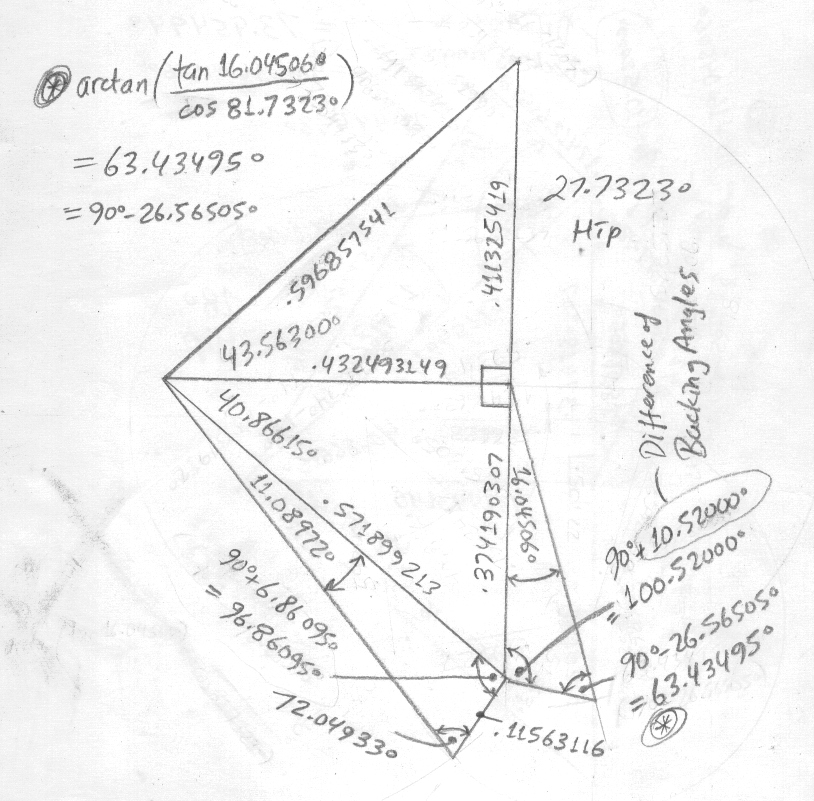 ⊛ arctan(tan 16.04506° / cos 81.7323°)
= 63.43495°
= 90°-26.56505°
.596857541
.411325419
27.7323°
HIP
43.56300°
.432493149
Difference of
Backing Angles
40.86615°
11.08972°
.571899213
.374190307
16.04506°
90°+10.52000°
= 100.52000°
90°+6.86095°
= 96.86095°
90°-26.56505°
= 63.43495°
⊛
72.04933°
.11563116